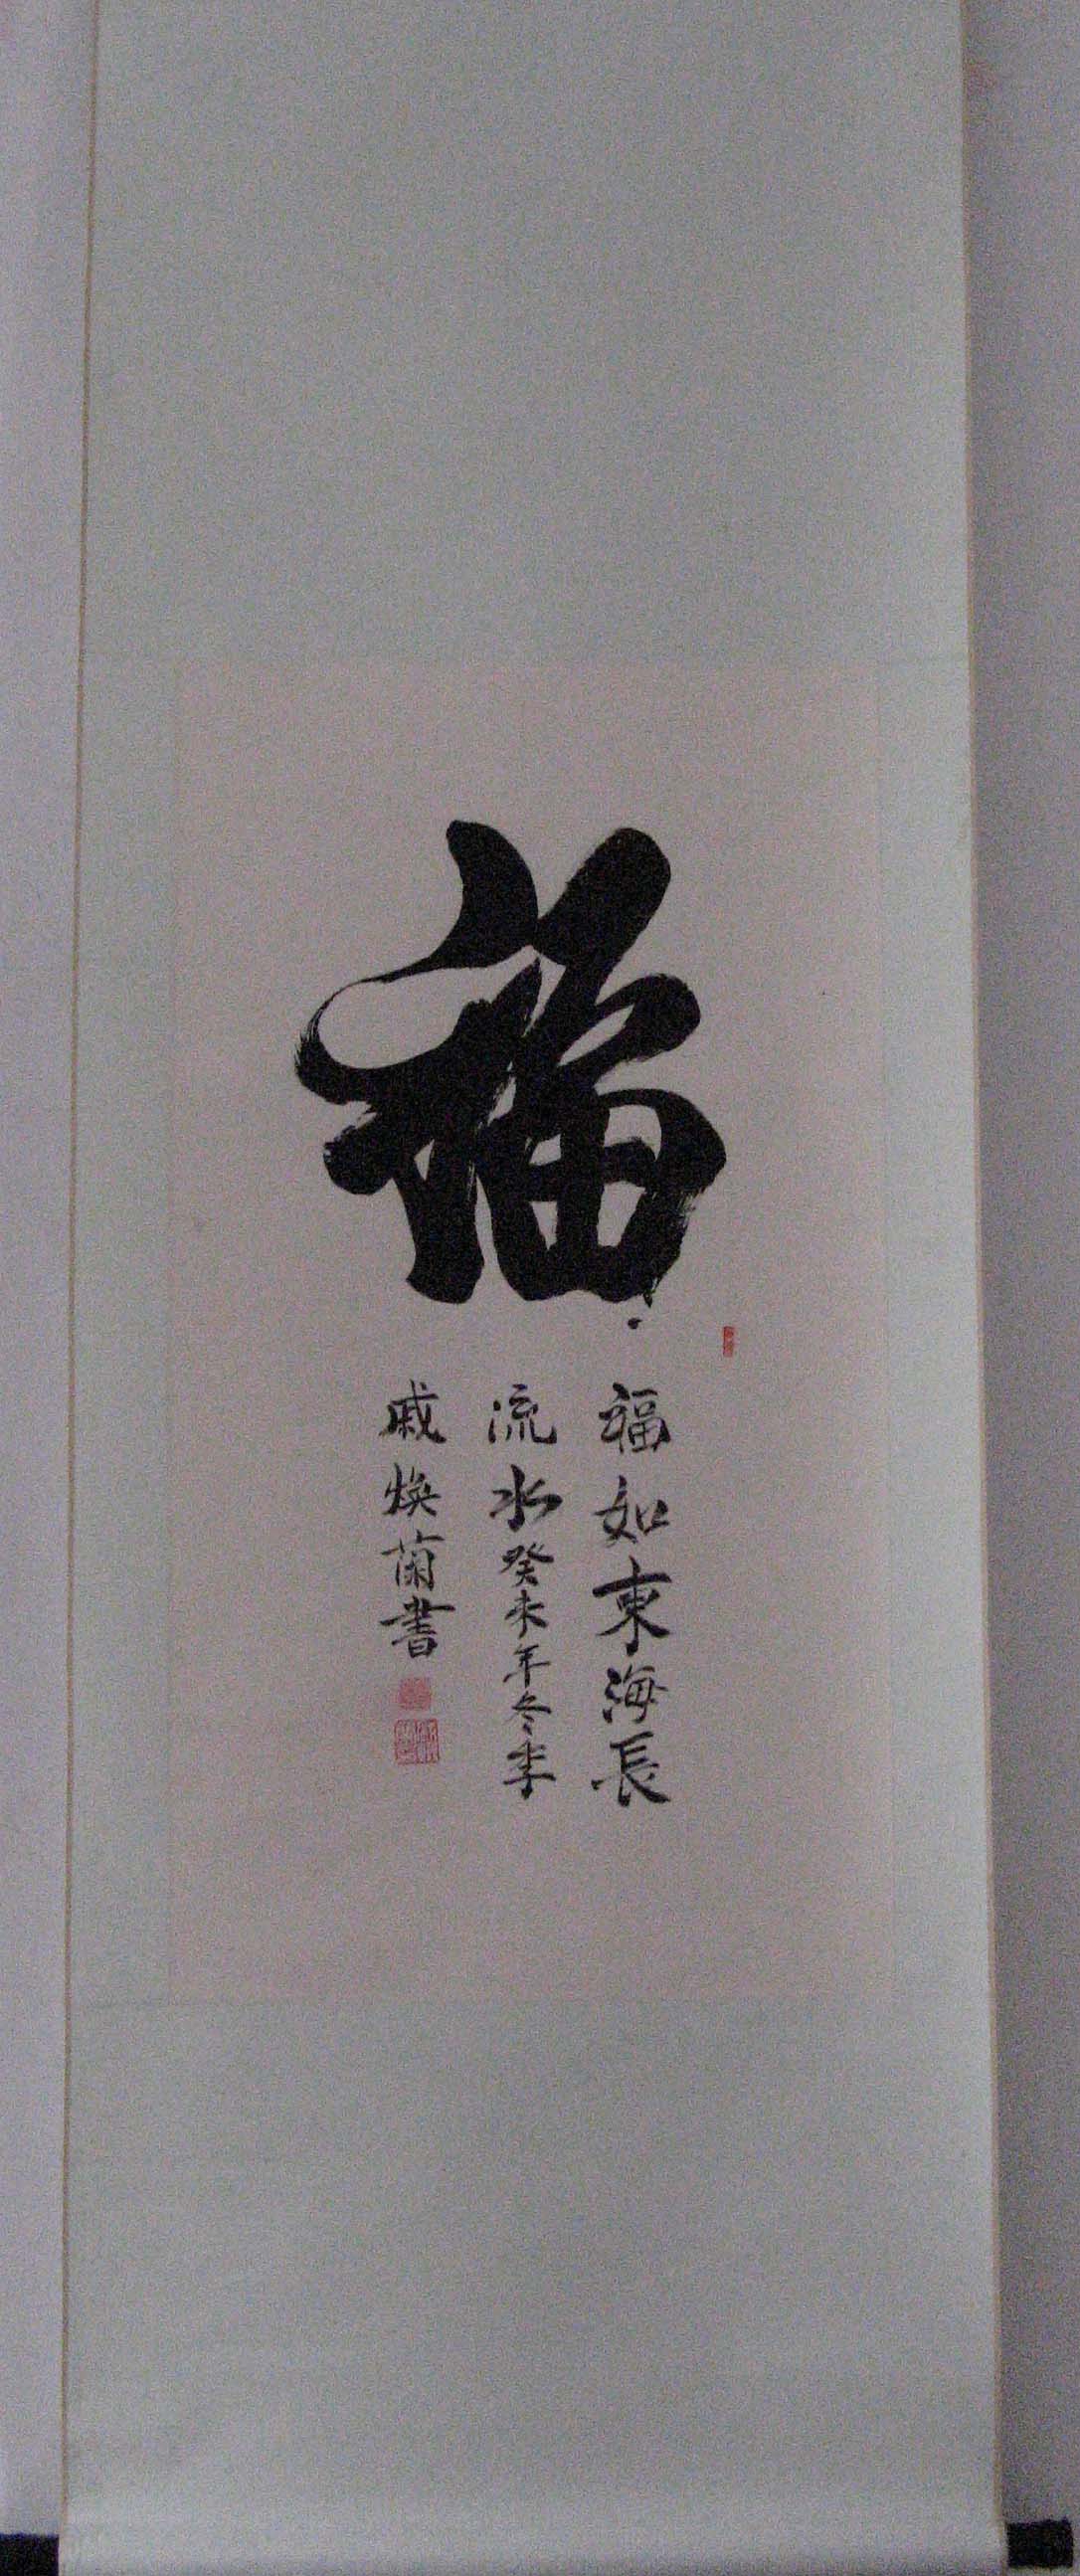 福
福如東海長
流水癸未年冬季
戚焕蘭書